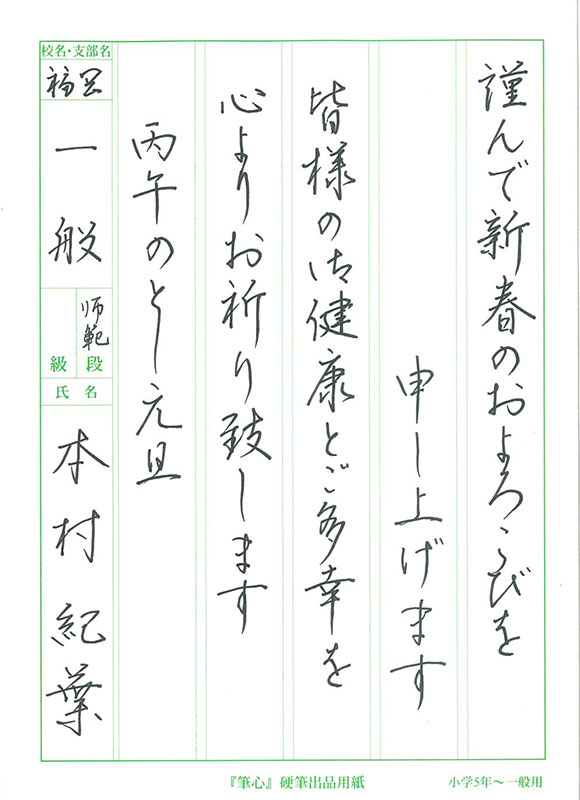 謹んで新春のおよろこびを
申し上げます
皆様の御健康とご多幸を
心よりお祈り致します
丙午のとし元旦
校名・支部名
福岡
一般
師範
級 段
氏 名
本村紀葉
『筆心』硬筆出品用紙
小学5年～一般用